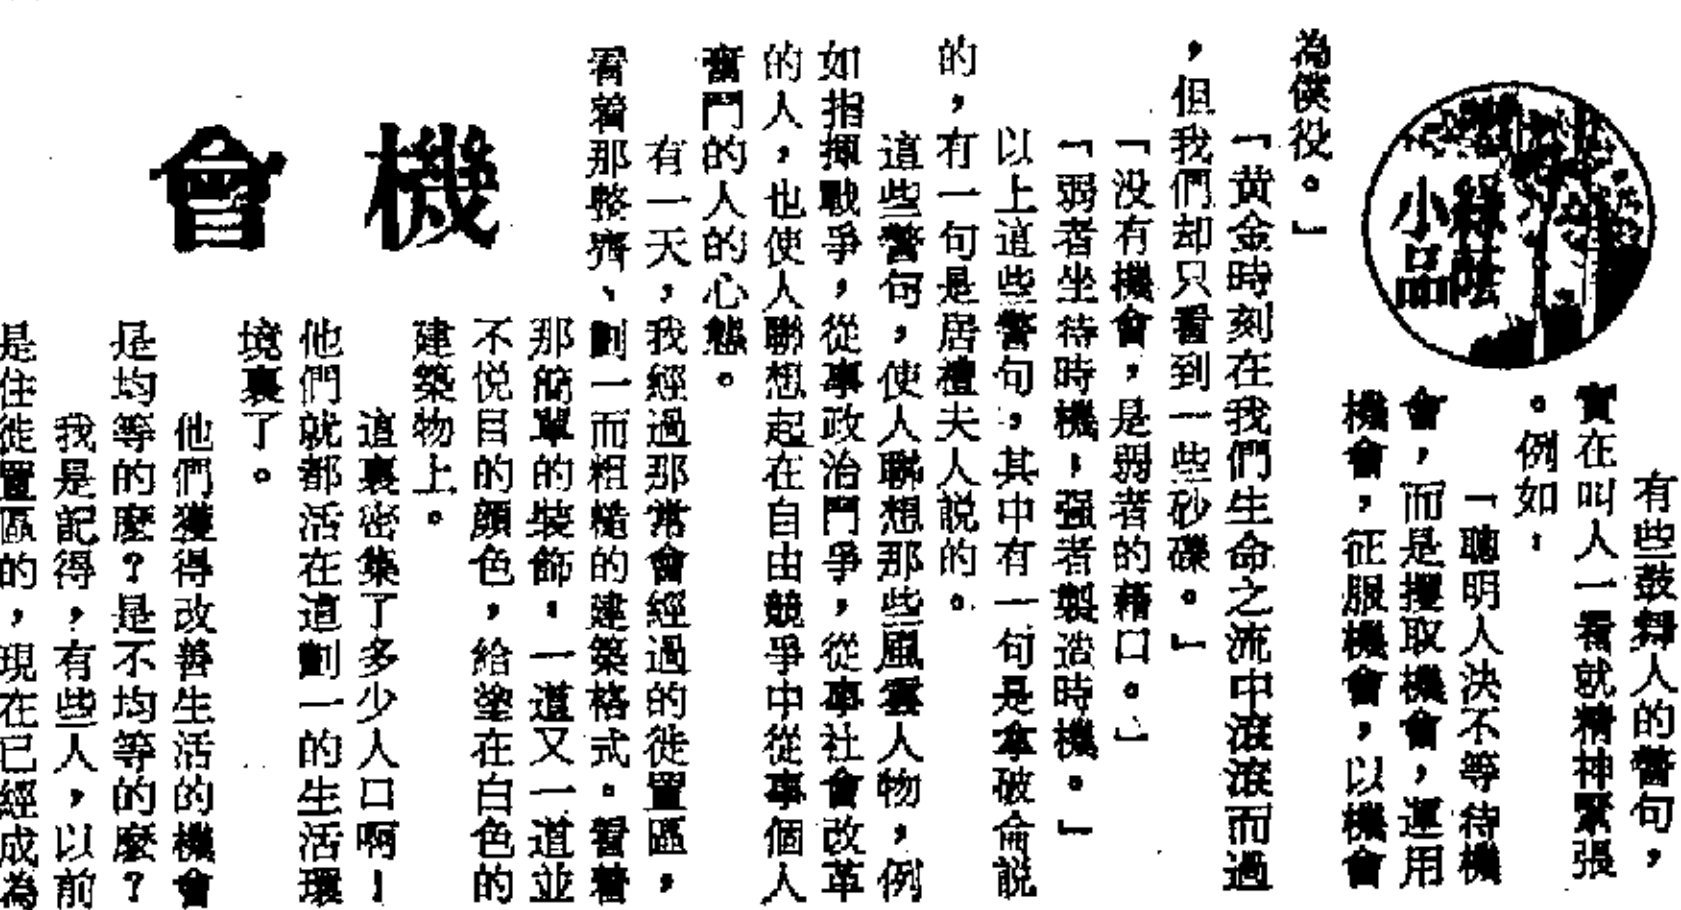 機會
綠蔭
小品
有些鼓舞人的警句，
實在叫人一看就精神緊張
。例如：
「聰明人決不等待機
會，而是攫取機會，運用
機會，征服機會，以機會
為僕役。」
「黄金時刻在我們生命之流中滾滾而過
，但我們却只看到一些砂礫。」
「没有機會，是弱者的藉口。」
「弱者坐待時機，强者製造時機。」
以上這些警句，其中有一句是拿破侖説
的，有一句是居禮夫人説的。
這些警句，使人聯想那些風雲人物，例
如指揮戰爭，從事政治鬥爭，從事社會改革
的人，也使人聯想起在自由競爭中從事個人
奮鬥的人的心態。
有一天，我經過那常會經過的徙置區，
看着那整齊、劃一而粗糙的建築格式。看着
那簡單的裝飾。一道又一道並
不悦目的顔色，給塗在白色的
建築物上。
這裏密集了多少人口啊！
他們就都活在這劃一的生活環
境裏了。
他們獲得改善生活的機會
是均等的麽？是不均等的麽？
我是記得，有些人，以前
是住徙置區的，現在已經成為